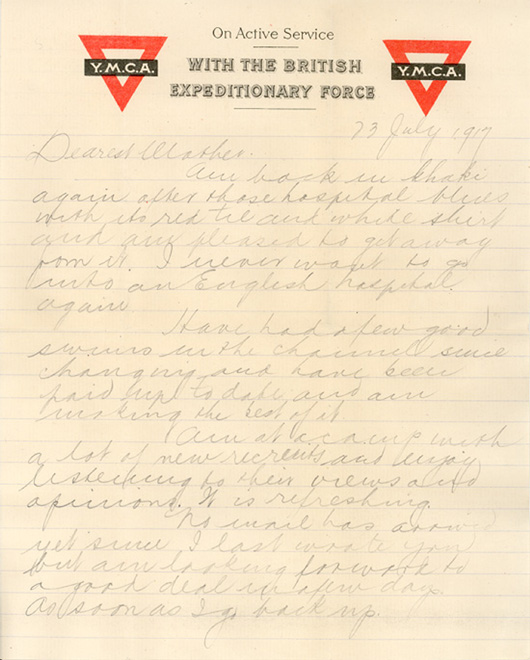 On Active Service
Y.M.C.A. WITH THE BRITISH Y.M.C.A.
EXPEDITIONARY FORCE
23 July 1917
Dearest Mother.
Am back in khaki
again after those hospital blues
with its red tie and white shirt
and am pleased to get away
from it. I never want to go
into an English hospital
again.
Have had a few good
swims in the channel since
changing and have been
paid up to date and am
making the best of it
Am at a camp with
a lot of new recruits and enjoy
listening to their views and
opinions. It is refreshing.
No mail has arrived
yet since I last wrote you
but am looking forward to
a good deal in a few days.
As soon as I go back up.